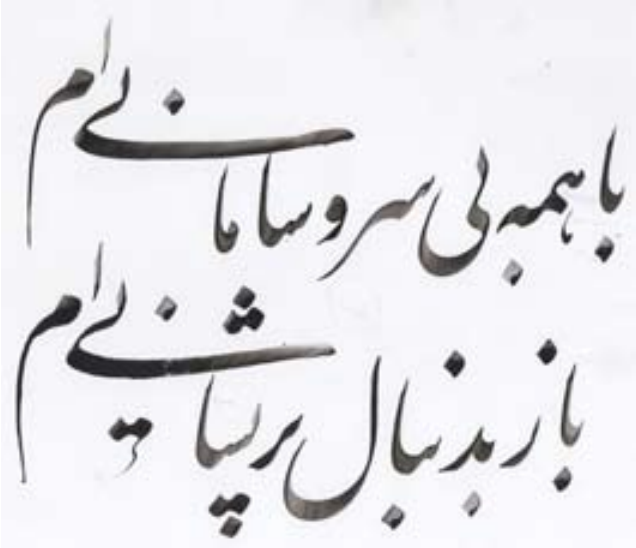 با همه بی سر و سامانی ام
باز بدنبال پریشانی ام